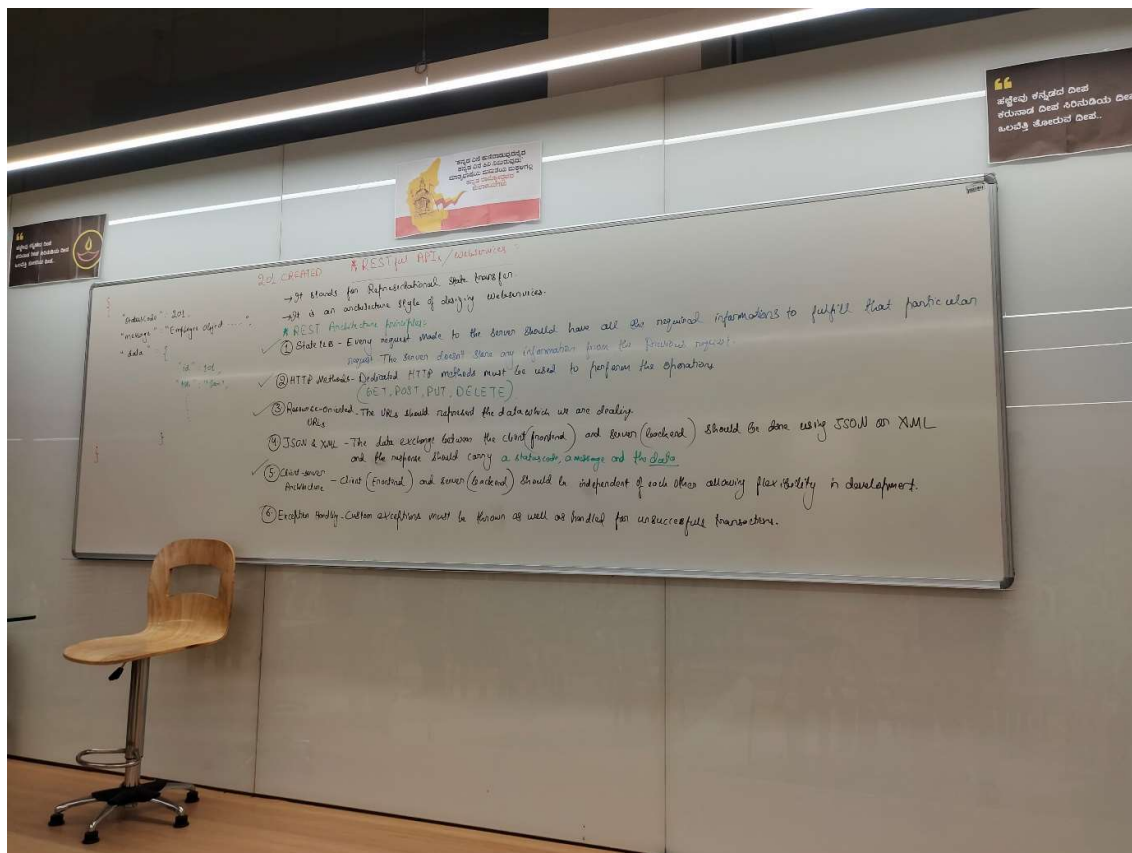 ಹಚ್ಚೇವು ಕನ್ನಡದ ದೀಪ
ಕರುನಾಡ ದೀಪ ಸಿರಿನುಡಿಯ ದೀಪ
ಒಲವೆತ್ತಿ ತೋರುವ ದೀಪ..
ಹಚ್ಚೇವು ಕನ್ನಡದ ದೀಪ
ಕರುನಾಡ ದೀಪ ಸಿರಿನುಡಿಯ ದೀಪ
ಒಲವೆತ್ತಿ ತೋರುವ ದೀಪ..
201 CREATED
RESTful APIs / webservices :
→ It stands for Representational State transfer.
→ It is an architecture style of desigig webservices.
REST Architecture principles:
① State less - Every request made to the server should have all the required informations to fulfill that particular
request The server doesn't store any information from the previous request.
② HTTP Methods - Dedicated HTTP methods must be used to perform the operations
(GET, POST, PUT, DELETE)
③ Resource-oriented - The URLs should represent the data which we are dealing.
URLs
④ JSON & XML - The data exchange between the client (frontend) and server (backend) should be done using JSON or XML
and the response should carry a statuscode, a message and the data
⑤ Client-server - Client (Frontend) and server (backend) should be independent of each other allowing flexibility in development.
Architecture
⑥ Exception Handling - Custom exceptions must be thrown as well as handled for unsuccessfull transactions.
{
: 201,
"message" : "Employee Object ...."
"data" : {
"id" : 101,
}
}